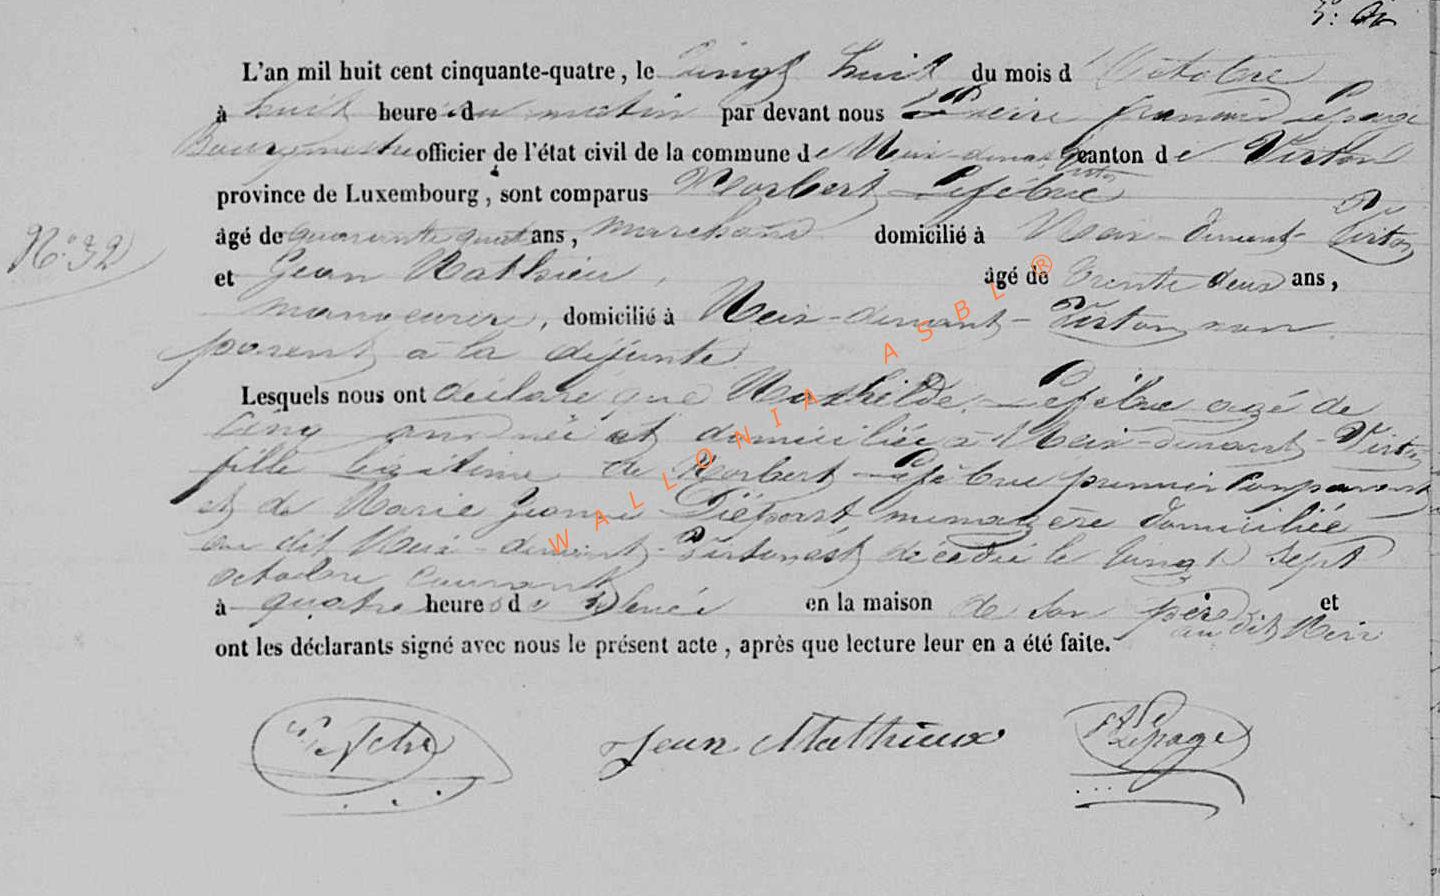 L'an mil huit cent cinquante-quatre, le vingt huit du mois d'Octobre
à huit heures du matin par devant nous Pierre françois Lepage
Bourgmestre officier de l'état civil de la commune de Meix-devant-Virton canton de Virton
province de Luxembourg, sont comparus Norbert Lefébvre
âgé de quarante quatre ans, marchand domicilié à Meix-devant-Virton
N.° 32
et Jean Mathieu, âgé de trente deux ans,
manoeuvre, domicilié à Meix-devant-Virton, non
parent à la défunte
Lesquels nous ont déclaré que Mathilde Lefébvre agé de
Cinq ans née et domiciliée à Meix-devant-Virton
fille légitime de Norbert Lefébvre premier Comparant
et de Marie Jeanne menagère domiciliée
au dit Meix-devant-Virton est décédée le vingt sept
octobre courant
à quatre heures de en la maison de son père et
au dit Meix
ont les déclarants signé avec nous le présent acte, après que lecture leur en a été faite.
Jean Mathieux
Lepage
WALLONIA ASBL ®